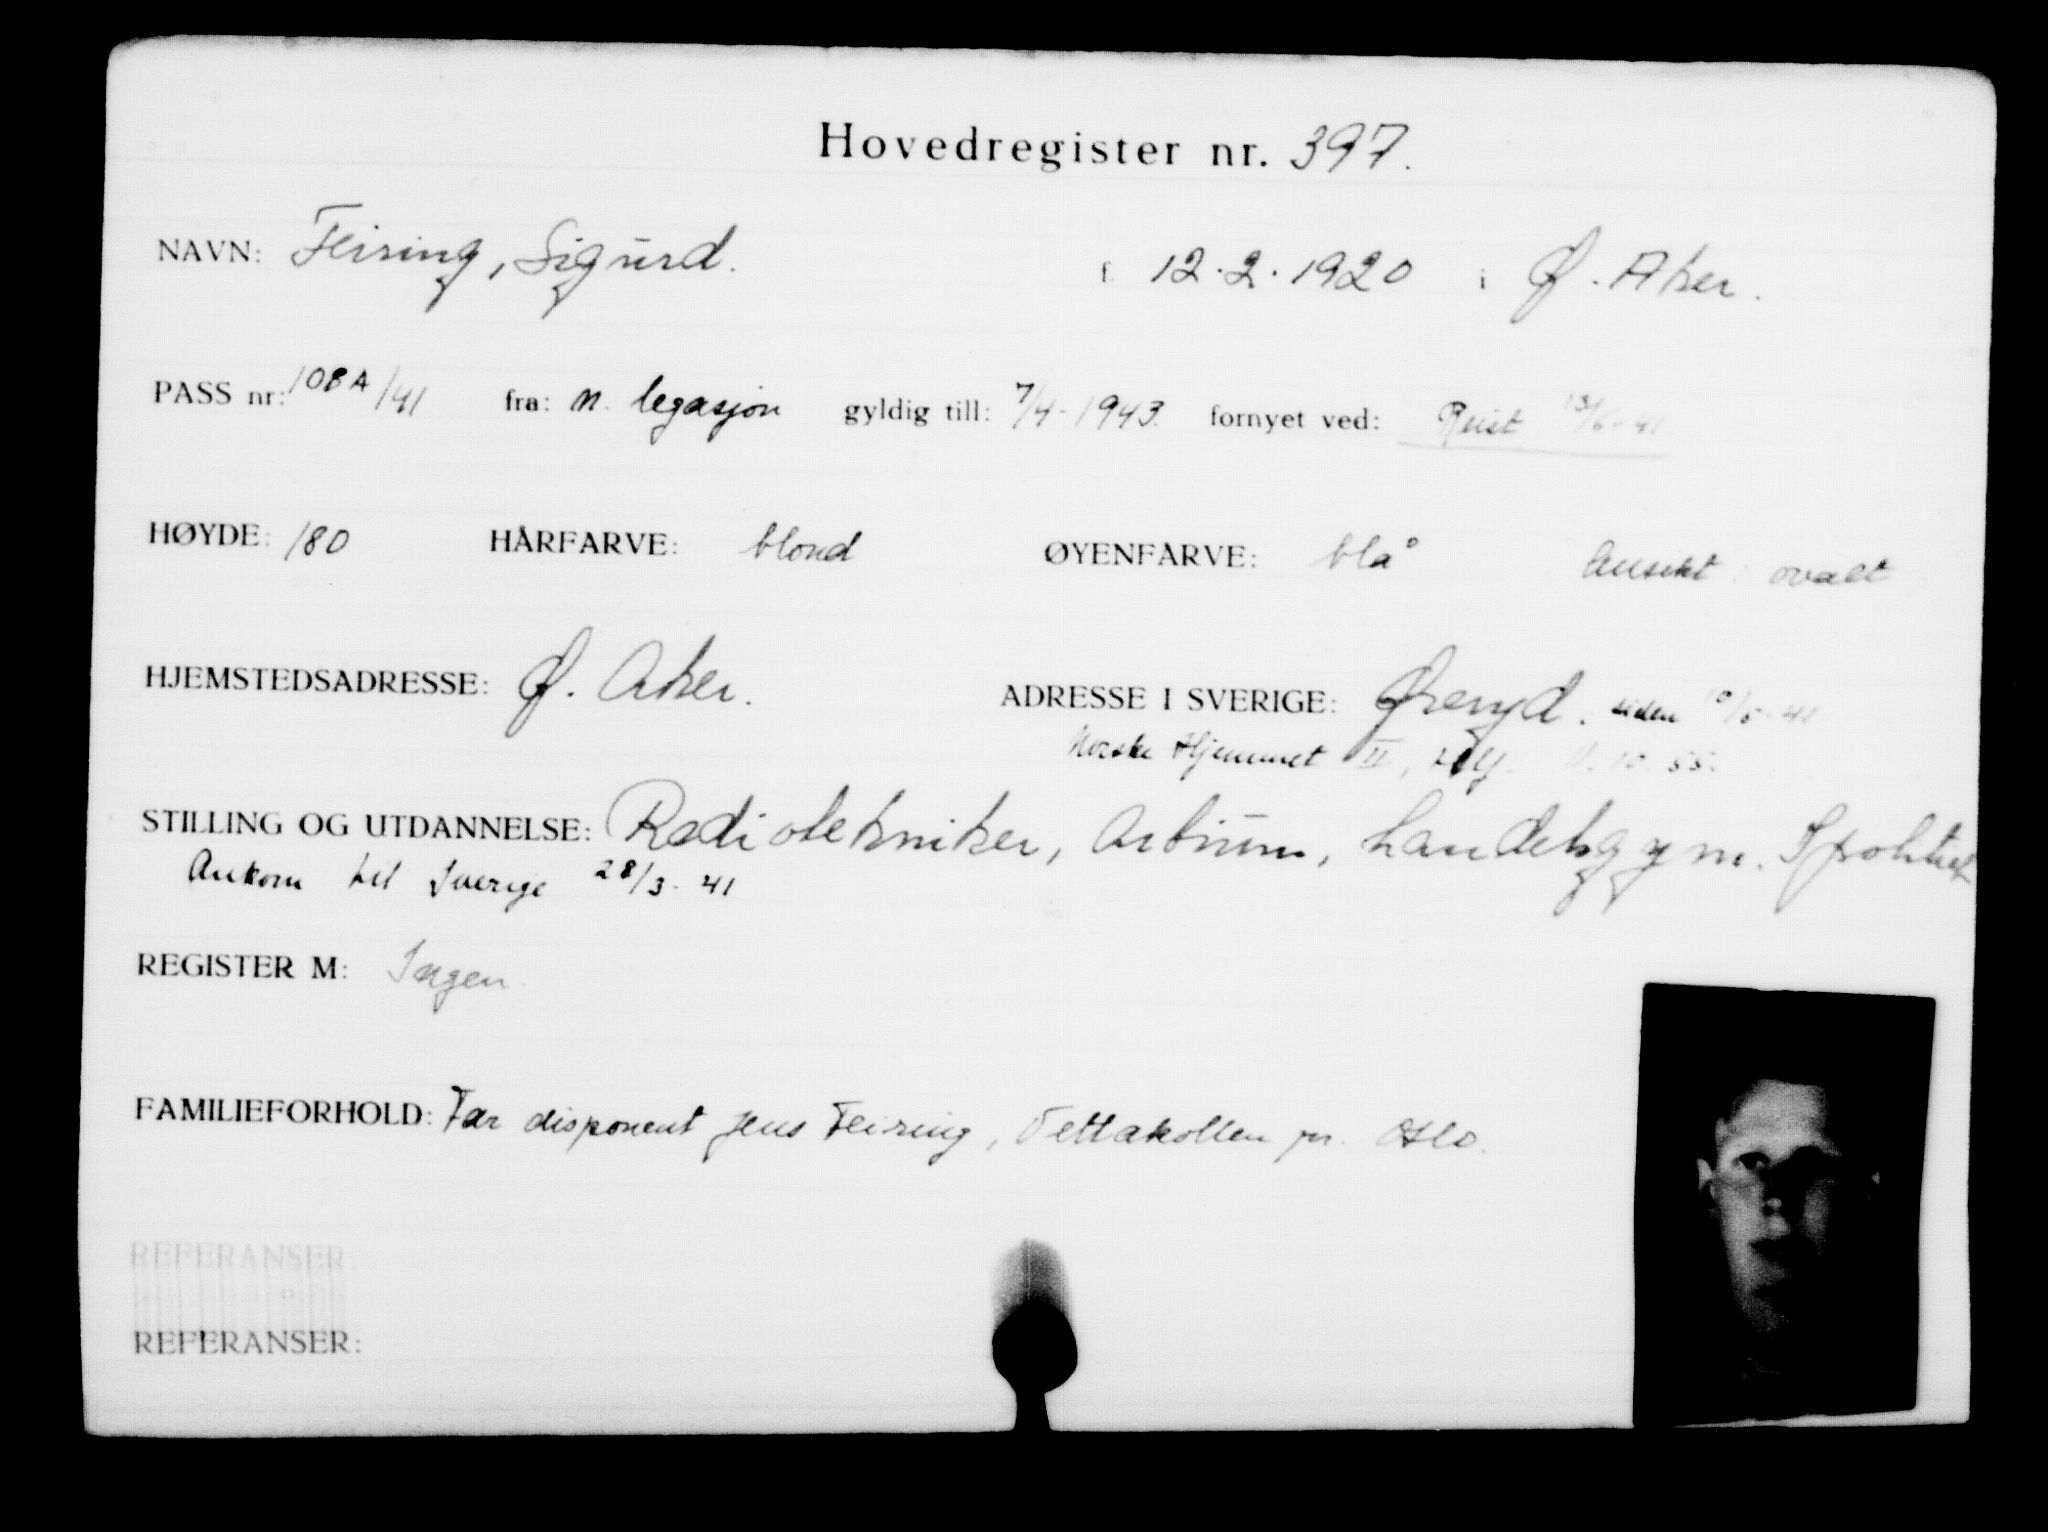 Hovedregister nr. 397.
NAVN: Feiring, Sigurd. f. 12.2.1920 i Ø. Aker.
PASS nr: 108A/41 fra: N. legasjon gyldig till: 7/4-1943 fornyet ved: Reist 13/6-41
HØYDE: 180 HÅRFARVE: blond ØYENFARVE: blå Ansikt: ovalt
HJEMSTEDSADRESSE: Ø. Aker. ADRESSE I SVERIGE: Øreryd. siden
Norske Hjemmet II, 11.10.55.
STILLING OG UTDANNELSE: Radiotekniker, Artium, Landetsgym.
Ankom til Sverige 28/3-41
REGISTER M: Ingen
FAMILIEFORHOLD: Far disponent Jens Feiring, Vettakollen pr. Oslo.
REFERANSER:
REFERANSER: